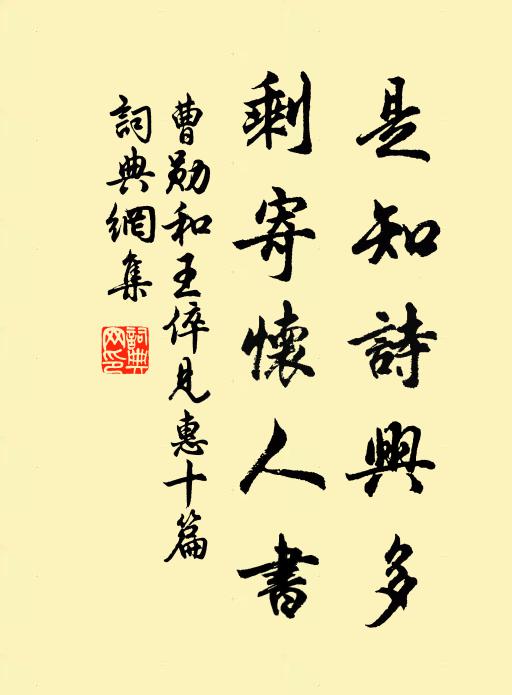 是知詩興多
剩寄懷人書
曹勛和王倅見惠十篇
詞典網集
詞典網印